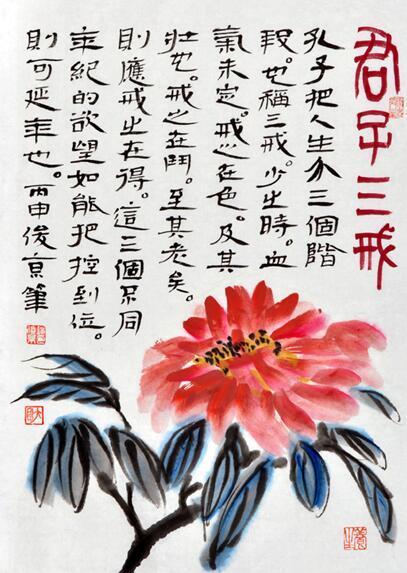 君子三戒
孔子把人生分三個階
段。也稱三戒。少之時。血
氣未定。戒之在色。及其
壯也。戒之在鬥。至其老矣。
則應戒之在得。這三個不同
年紀的欲望如能把控到位。
則可延年也。丙申俊京筆